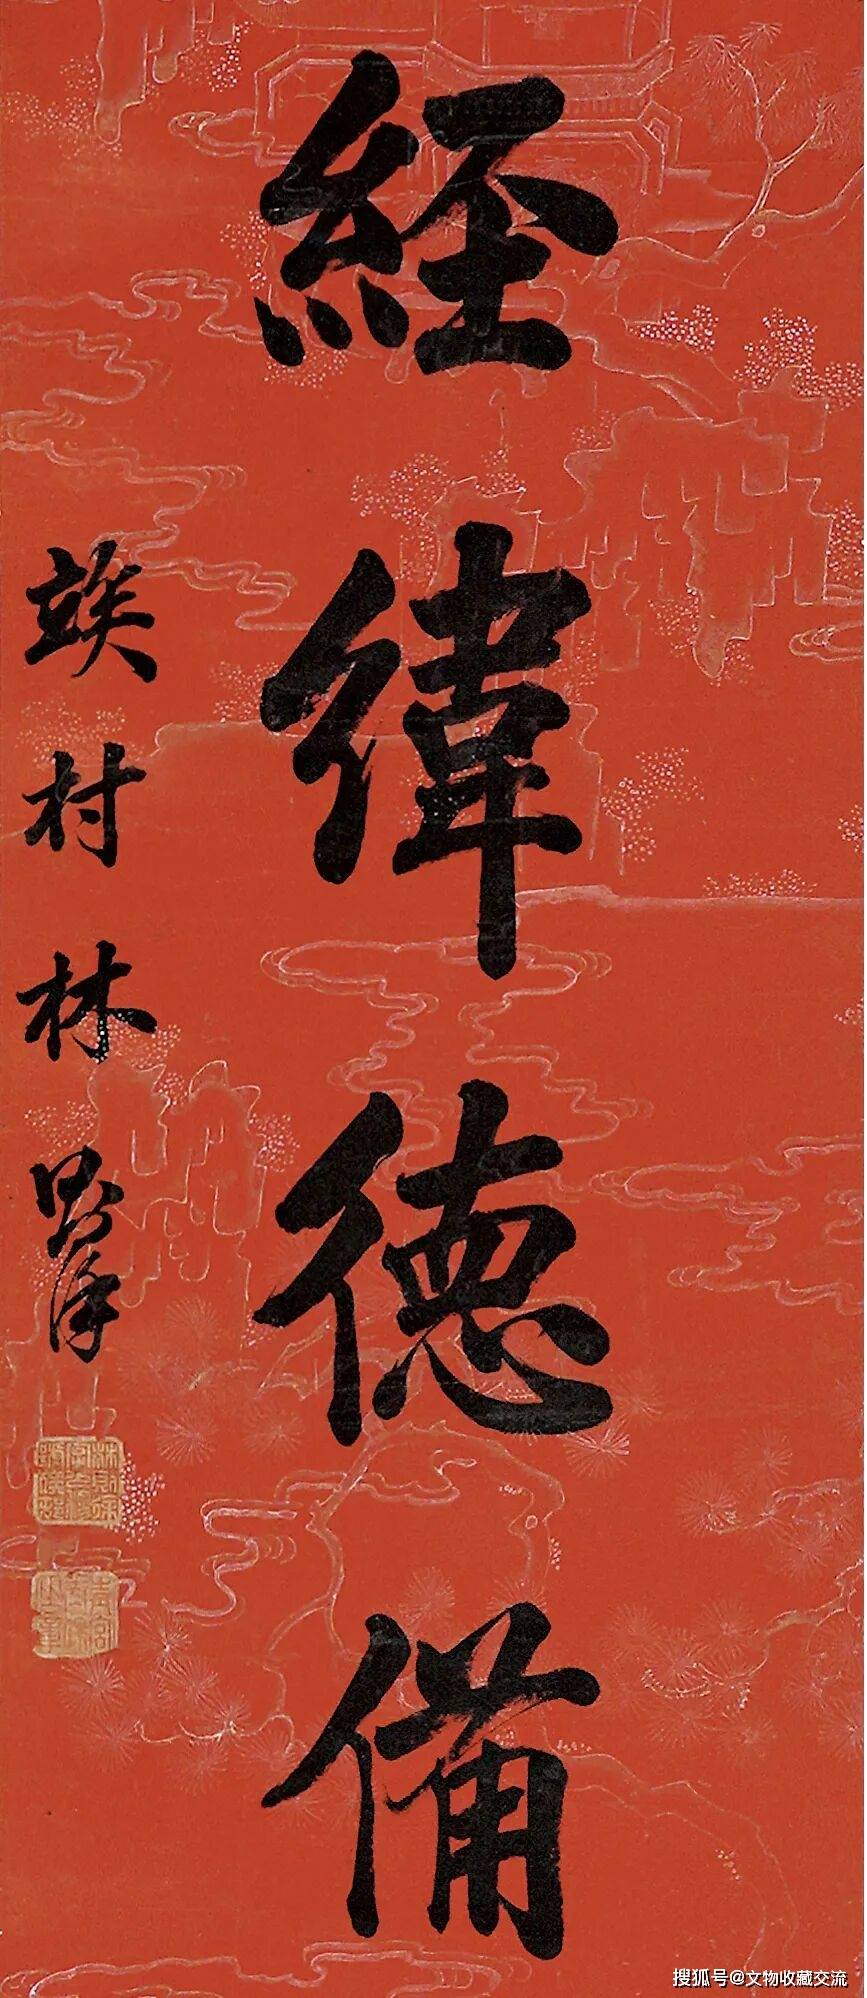 經緯德備
竢村林則徐
搜狐号@文物收藏交流